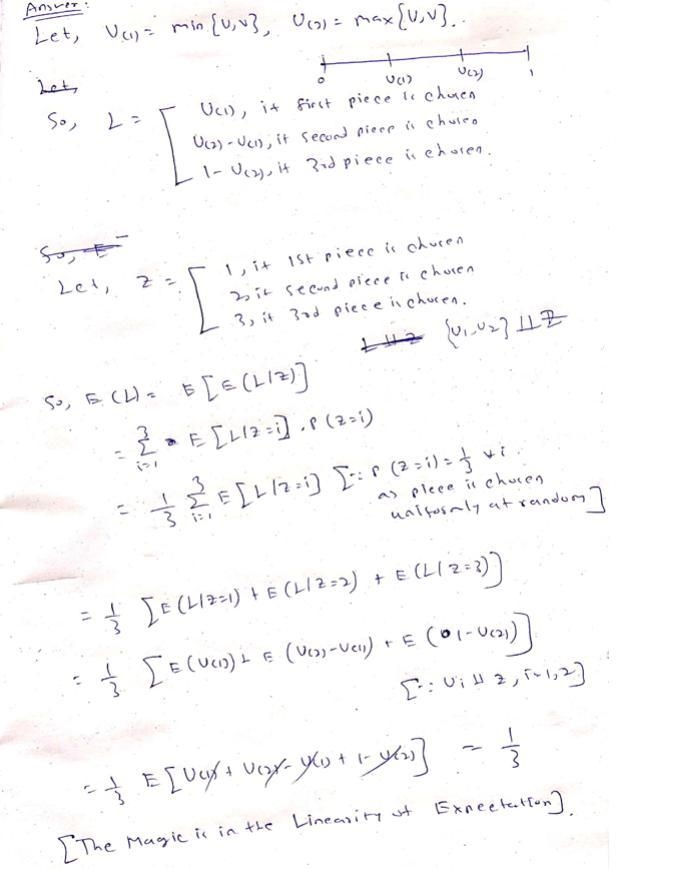 Answer:
Let, U(1) = min {U,V}, U(2) = max {U,V}.
0 U(1) U(2) 1
Let,
So, L = [ U(1), if first piece is chosen
U(2) - U(1), if second piece is chosen
1 - U(2), if 3rd piece is chosen.
So, E
Let, Z = [ 1, if 1st piece is chosen
2, if second piece is chosen
3, if 3rd piece is chosen.
L ⊥⊥ Z {U1, U2} ⊥⊥ Z
So, E(L) = E[E(L|Z)]
= 3 Σ i=1 E[L|Z=i] . P(Z=i)
= 1/3 3 Σ i=1 E[L|Z=i] [∵ P(Z=i) = 1/3 ∀ i.
as piece is chosen
uniformly at random]
= 1/3 [E(L|Z=1) + E(L|Z=2) + E(L|Z=3)]
= 1/3 [E(U(1)) + E(U(2)-U(1)) + E(1-U(2))]
[∵ Ui ⊥⊥ Z, i=1,2]
= 1/3 E[U(1) + U(2) - U(1) + 1 - U(2)] = 1/3
[The Magic is in the Linearity of Expectation].